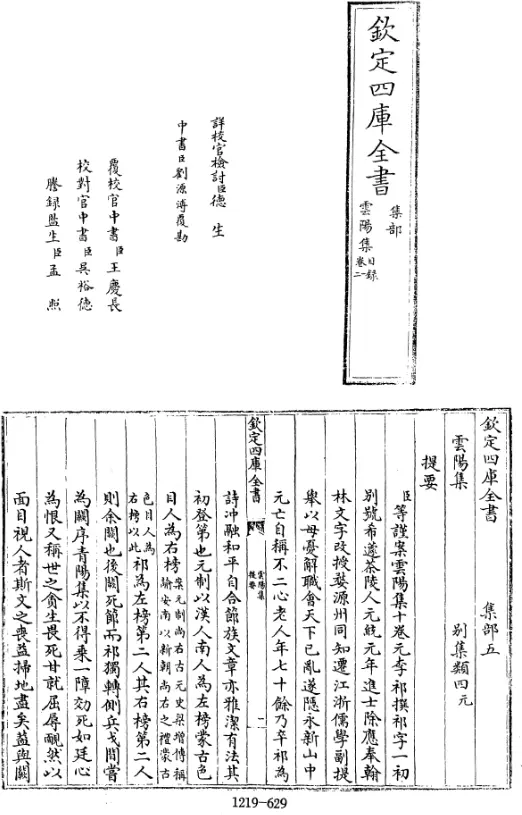 欽定四庫全書
集部
雲陽集
目錄
卷一
詳校官檢討臣德生
中書臣劉源溥覆勘
覆校官中書臣王慶長
校對官中書臣吳裕德
謄録監生臣孟煦
欽定四庫全書
集部五
雲陽集
别集類四元
提要
臣等謹案雲陽集十卷元李祁撰祁字一初
别號希蘧茶陵人元統元年進士除應奉翰
林文字改授婺源州同知遷江浙儒學副提
舉以母憂解職會天下已亂遂隠永新山中
元亡自稱不二心老人年七十餘乃卒祁為
欽定四庫全書
雲陽集
提要
一
詩冲融和平自合節族文章亦雅潔有法其
初登第也元制以漢人南人為左榜蒙古色
目人為右榜
案元制尚右古元史
喻安南以新朝尚右之禮蒙古
色目人為
右榜以此
祁為左榜第二人其右榜第二人
則余闕也後闕死節而祁獨轉側兵戈間嘗
為闕序青陽集以不得乘一障効死如廷心
為恨又稱世之貪生畏死甘就屈辱靦然以
面目視人者斯文之喪益掃地盡矣葢與闕
1219-629